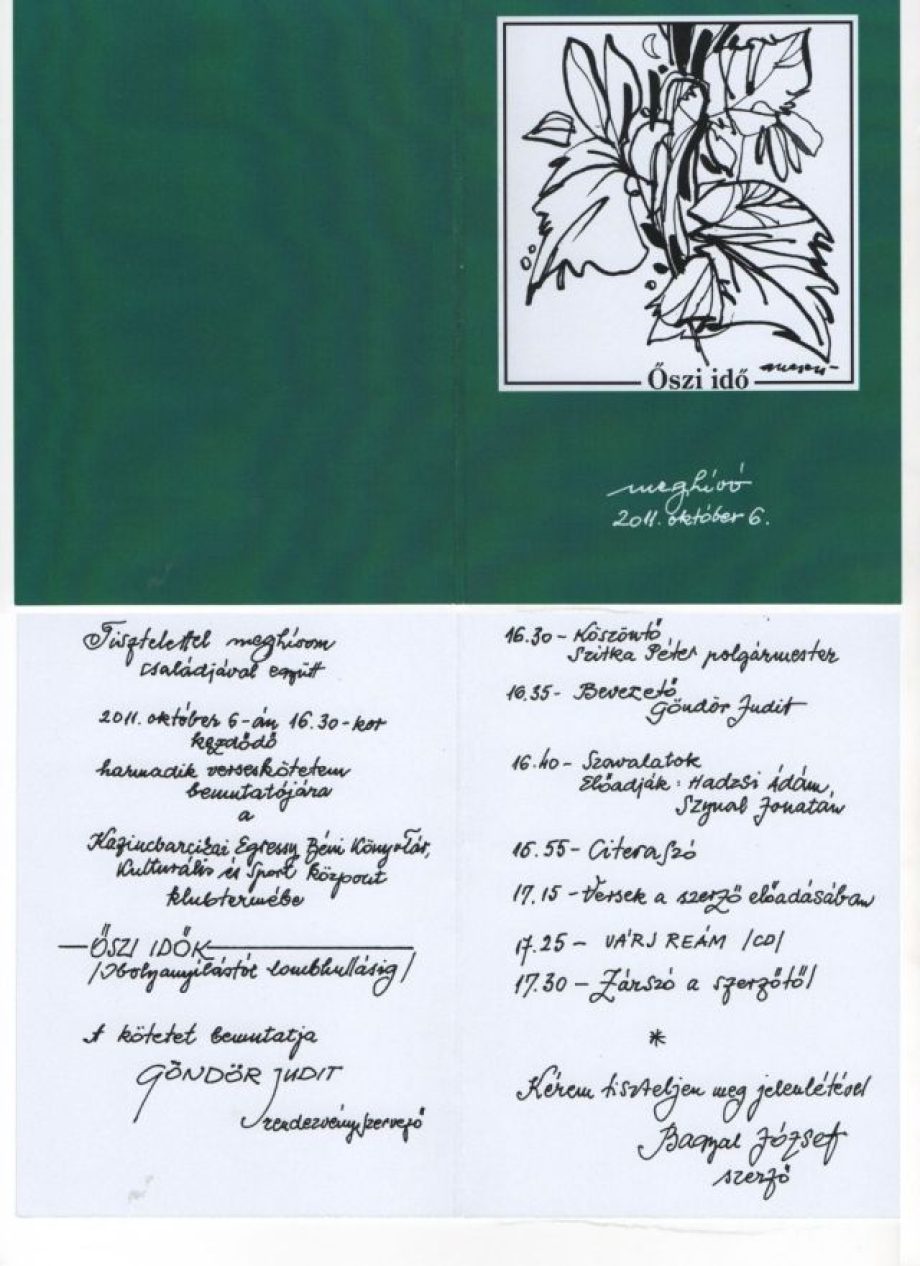 Őszi idő
meghívó
2011. október 6.
Tisztelettel meghívom
családjával együtt
2011. október 6-án 16.30-kor
kezdődő
harmadik verseskötetem
bemutatójára
a
Kazincbarcikai Egressy Béni Könyvtár,
Kulturális és Sport központ
klubtermébe
ŐSZI IDŐK
/Ibolyanyilástól lombhullásig/
A kötetet bemutatja
GÖNDÖR JUDIT
rendezvényszervező
16.30 - Köszöntő
Szitka Péter polgármester
16.35 - Bevezető
Göndör Judit
16.40 - Szavalatok
Előadják: Hadzsi Ádám,
Szynal Jonatán
16.55 - Citeraszó
17.15 - Versek a szerző előadásában
17.25 - VÁRJ REÁM /CD/
17.30 - Zárszó a szerzőtől
*
Kérem tiszteljen meg jelenlétével
József
szerző